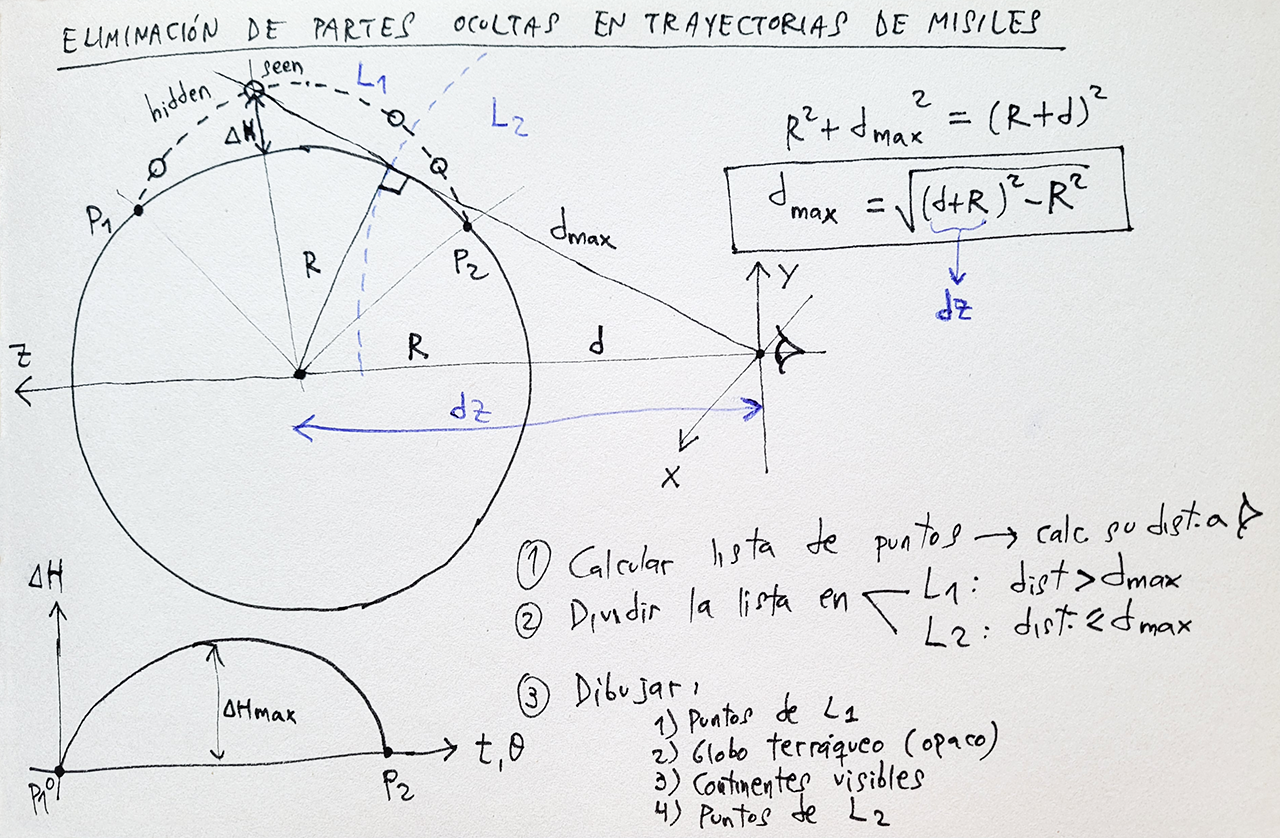 ELIMINACIÓN DE PARTES OCULTAS EN TRAYECTORIAS DE MISILES
hidden
seen
L1
L2
ΔH
P1
P2
R
dmax
R
d
dz
Z
Y
X
R² + dmax² = (R+d)²
dmax = √(d+R)² - R²
dz
① Calcular lista de puntos → calc su dist. a
② Dividir la lista en L1: dist > dmax
L2: dist. ≤ dmax
③ Dibujar:
1) Puntos de L1
2) Globo terráqueo (opaco)
3) Continentes visibles
4) Puntos de L2
ΔH
ΔHmax
t, θ
P1
0
P2